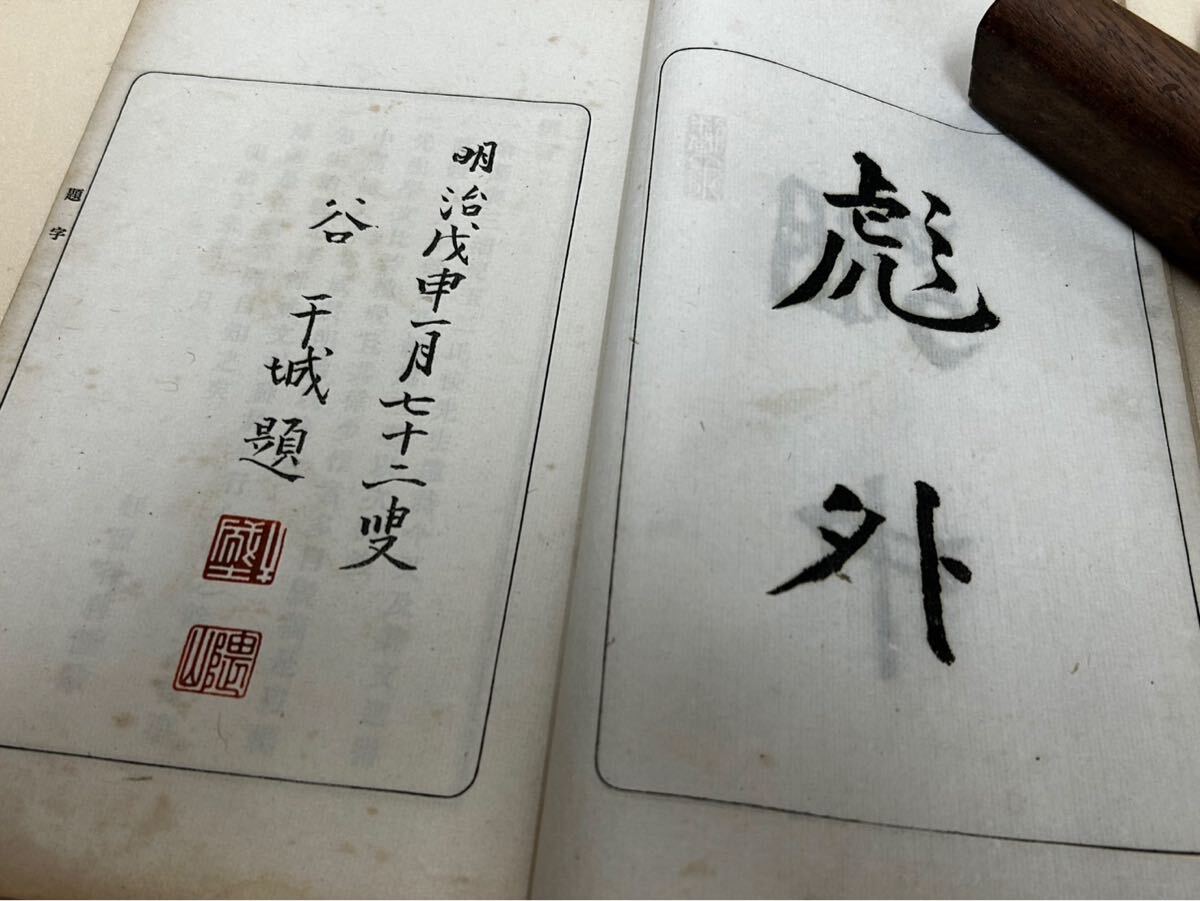 彪外
明治戊申一月七十二叟
谷干城題
隈山
題字